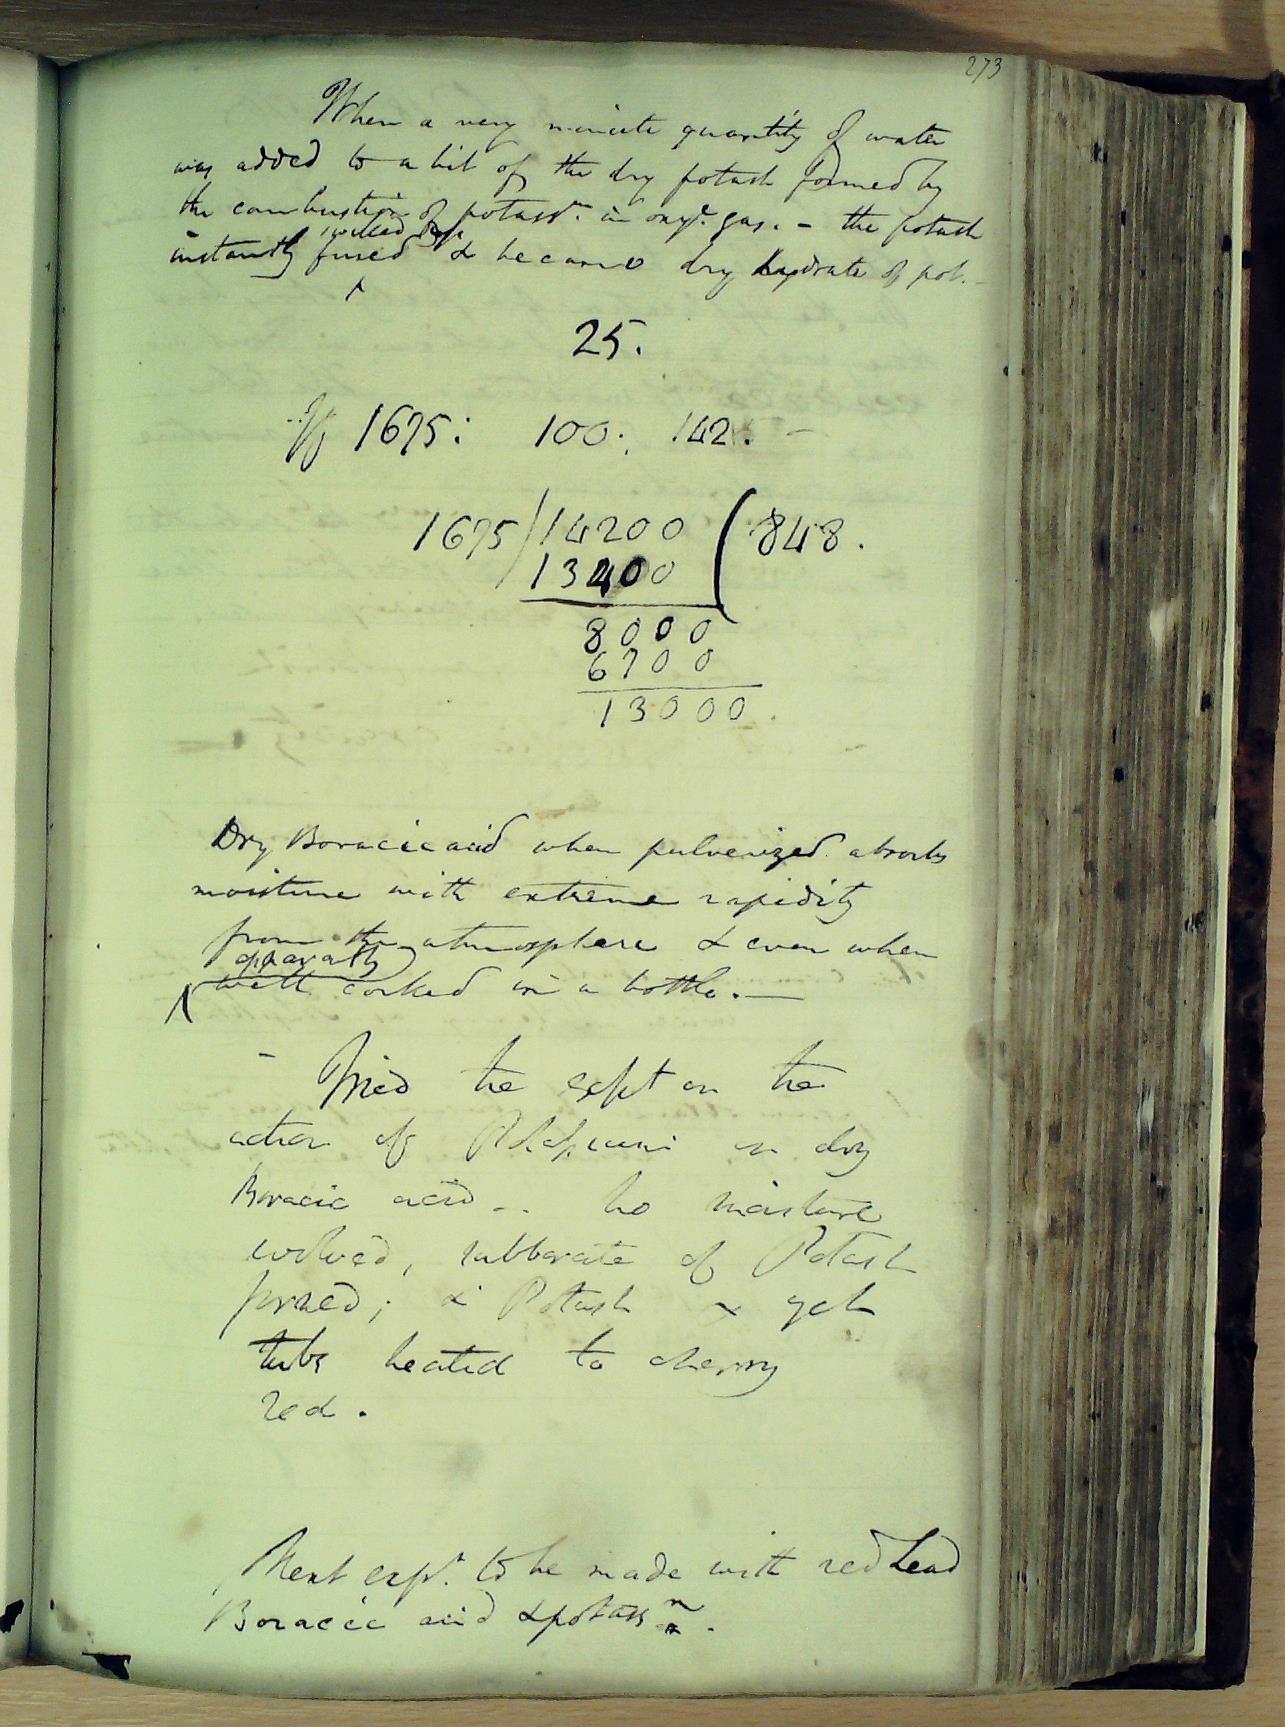 273
When a very minute quantity of water
was added to a bit of the dry potash formed by
the combustion of potassm. in oxye. gas. - the potash
instantly fused & became dry hydrate of pot. -
25.
If 1675: 100: 142. -
1675/14200(848.
13400
8000
6700
13000
Dry Boracic acid when pulverized absorbs
moisture with extreme rapidity
from the atmosphere & even when
apparently
well corked in a bottle. —
- Tried the expt on the
action of Potassium on dry
Boracic acid -. no moisture
evolved, subborate of Potash
formed; & Potash & yet
tube heated to cherry
red.
Next expt. to be made with red Lead
Boracic acid & potassm.